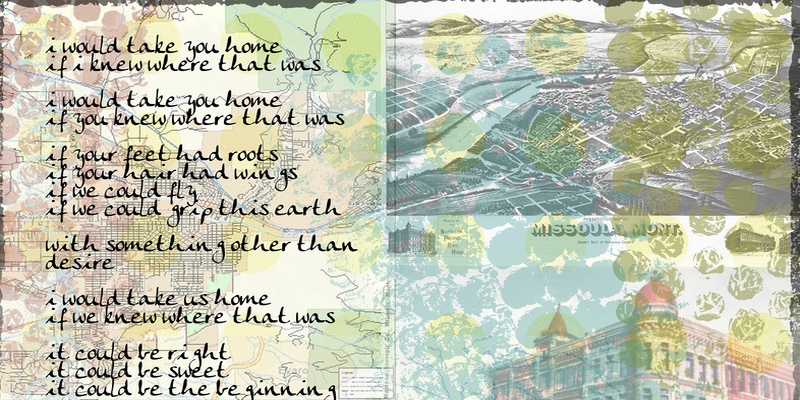 i would take you home
if i knew where that was
i would take you home
if you knew where that was
if your feet had roots
if your hair had wings
if we could fly
if we could grip this earth
with something other than
desire
i would take us home
if we knew where that was
it could be right
it could be sweet
it could be the beginning
MISSOULA, MONT.